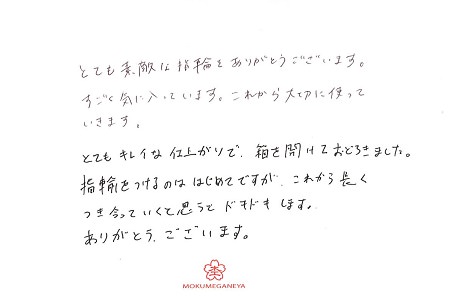 とても素敵な指輪をありがとうございます。
すごく気に入っています。これから大切に使って
いきます。
とてもキレイな仕上がりで、箱を開けておどろきました。
指輪をつけるのははじめてですが、これから長く
つき合っていくと思うとドキドキします。
ありがとうございます。
MOKUMEGANEYA